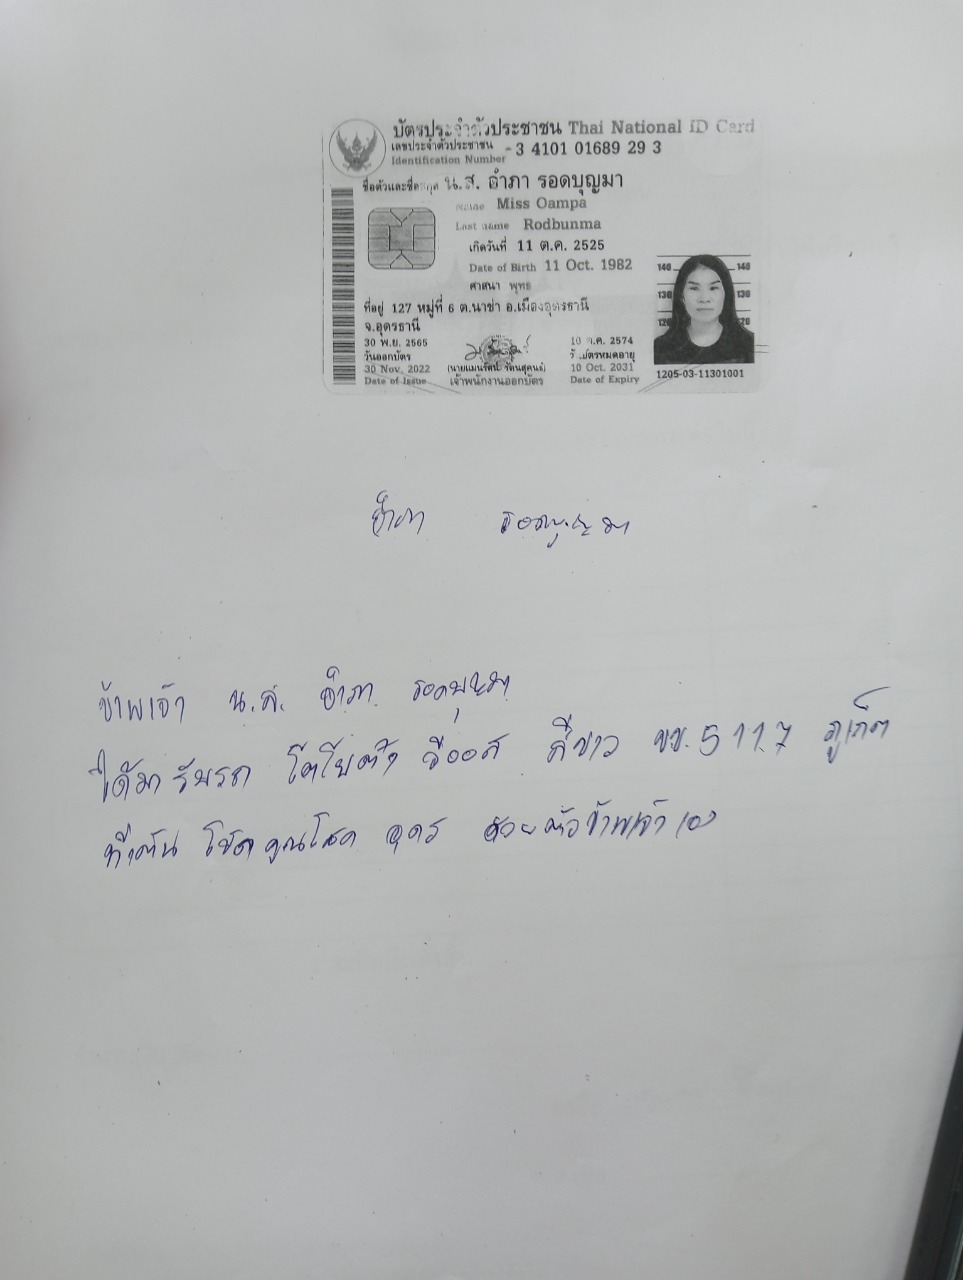 บัตรประจำตัวประชาชน Thai National ID Card
เลขประจำตัวประชาชน - 3 4101 01689 29 3
Identification Number
ชื่อตัวและชื่อสกุล น.ส. อำภา รอดบุญมา
Name Miss Oampa
Last name Rodbunma
เกิดวันที่ 11 ต.ค. 2525
Date of Birth 11 Oct. 1982
ศาสนา พุทธ
ที่อยู่ 127 หมู่ที่ 6 ต.นาข่า อ.เมืองอุดรธานี
จ.อุดรธานี
30 พ.ย. 2565
วันออกบัตร
30 Nov. 2022
Date of Issue
เจ้าพนักงานออกบัตร
10 ต.ค. 2574
วันบัตรหมดอายุ
10 Oct. 2031
Date of Expiry
140 140
130 130
120 120
1205-03-11301001
อำภา รอดบุญมา
ข้าพเจ้า น.ส. อำภา รอดบุญมา
ได้มารับรถ โตโยต้า สีขาว 5117 ภูเก็ต
ที่เต้น โชคคูณโชค อุดร ด้วยตัวข้าพเจ้าเอง